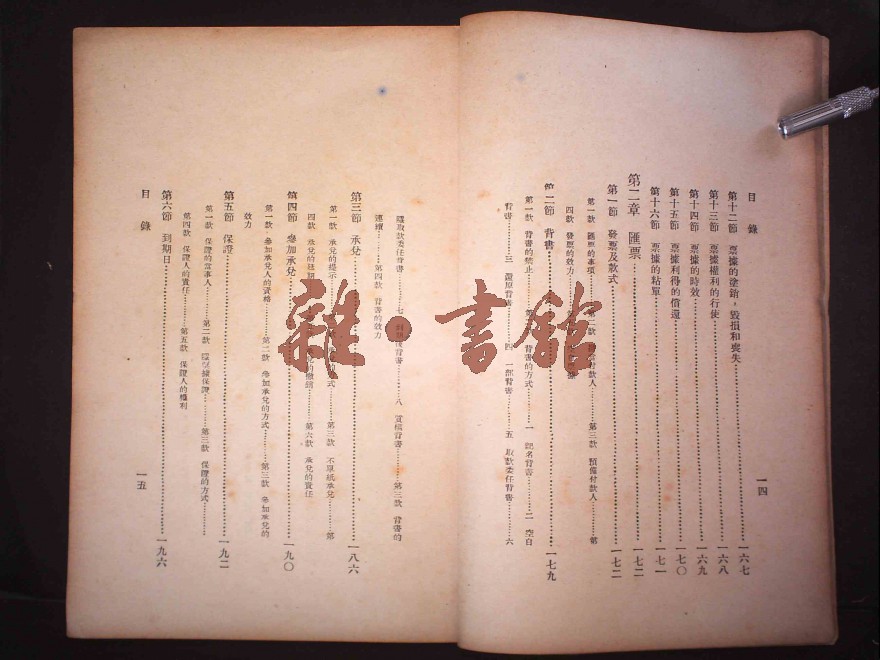 目錄
一四
第十二節 票據的塗銷,毀損和喪失……一六七
第十三節 票據權利的行使……一六八
第十四節 票據的時效……一六九
第十五節 票據利得的償還……一七〇
第十六節 票據的粘單……一七一
第二章 匯票……一七二
第一節 發票及款式……一七二
第一款 匯票的事項……第二款 付款人……第三款 預備付款人……第
四款 發票的效力
第二節 背書……一七九
第一款 背書的禁止……第二款 背書的方式……一 記名背書……二 空白
背書……三 還原背書……四 一部背書……五 取款委任背書……六
隱取款委任背書……七 背書……八 質權背書……第三款 背書的
連續……第四款 背書的效力
第三節 承兌……一八六
第一款 承兌的提示……式……第三款 不單純承兌……第
四款 承兌的延期……第六款 承兌的責任
第四節 參加承兌……一九〇
第一款 參加承兌人的資格……第二款 參加承兌的方式……第三款 參加承兌的
效力
第五節 保證……一九二
第一款 保證的當事人……第二款 保證……第三款 保證的方式……
第四款 保證人的責任……第五款 保證人的權利
第六節 到期日……一九六
目錄
一五
雜·書館